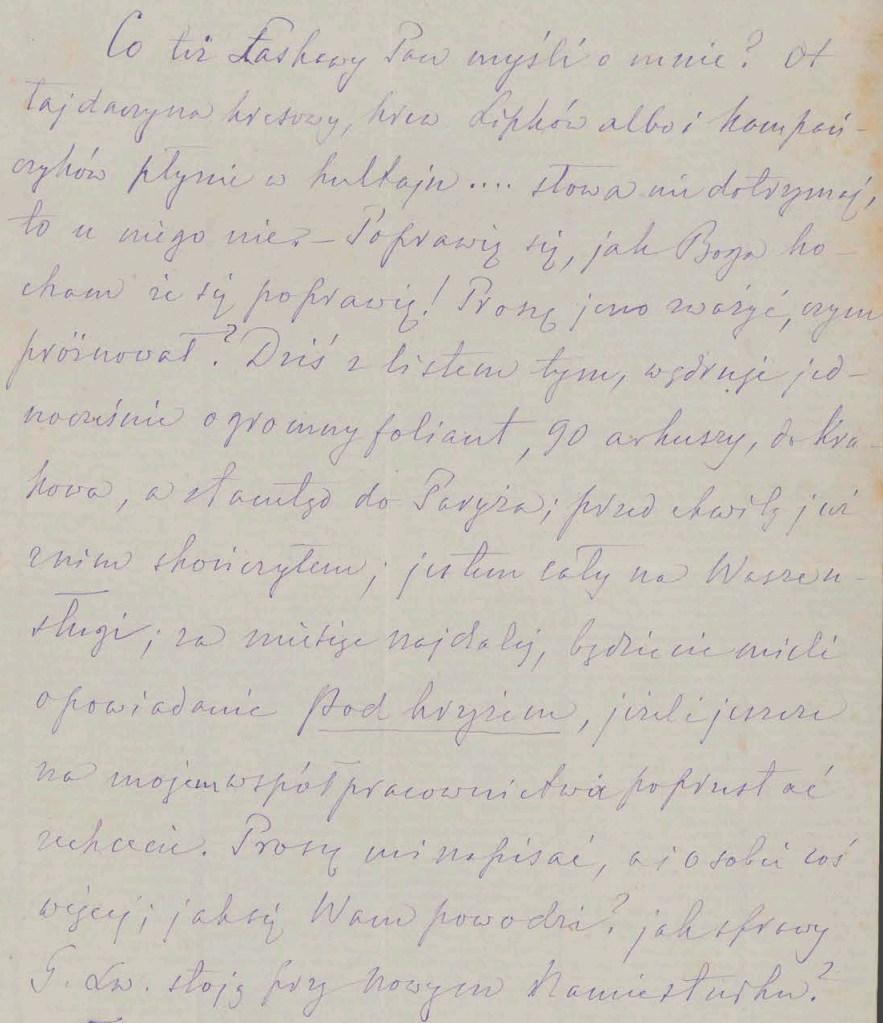 Co też Łaskawy Pan myśli o mnie? Ot
łajdaczyna kresowy, krew Lipków albo i kampań-
czyków płynie w hultaju .... słowa nie dotrzymać,
to u niego nic. – Poprawię się, jak Boga ko-
cham że się poprawię! Proszę jeno zważyć, czym
próżnował? Dziś z listem tym, wędruje jed-
nocześnie ogromny foliant, 90 arkuszy, do Kra-
kowa, a stamtąd do Paryża; przed chwilą już
z nim skończyłem; jestem cały na Wasze u-
sługi; za miesiąc najdalej, będziecie mieli
opowiadanie Pod krzyżem, jeżeli jeszcze
na mojem współpracownictwie poprzestać
zechcecie. Proszę mi napisać, a i o sobie coś
więcej; jak się Wam powodzi? jak sprawy
G. Lw. stoją przy nowym Namiestniku?